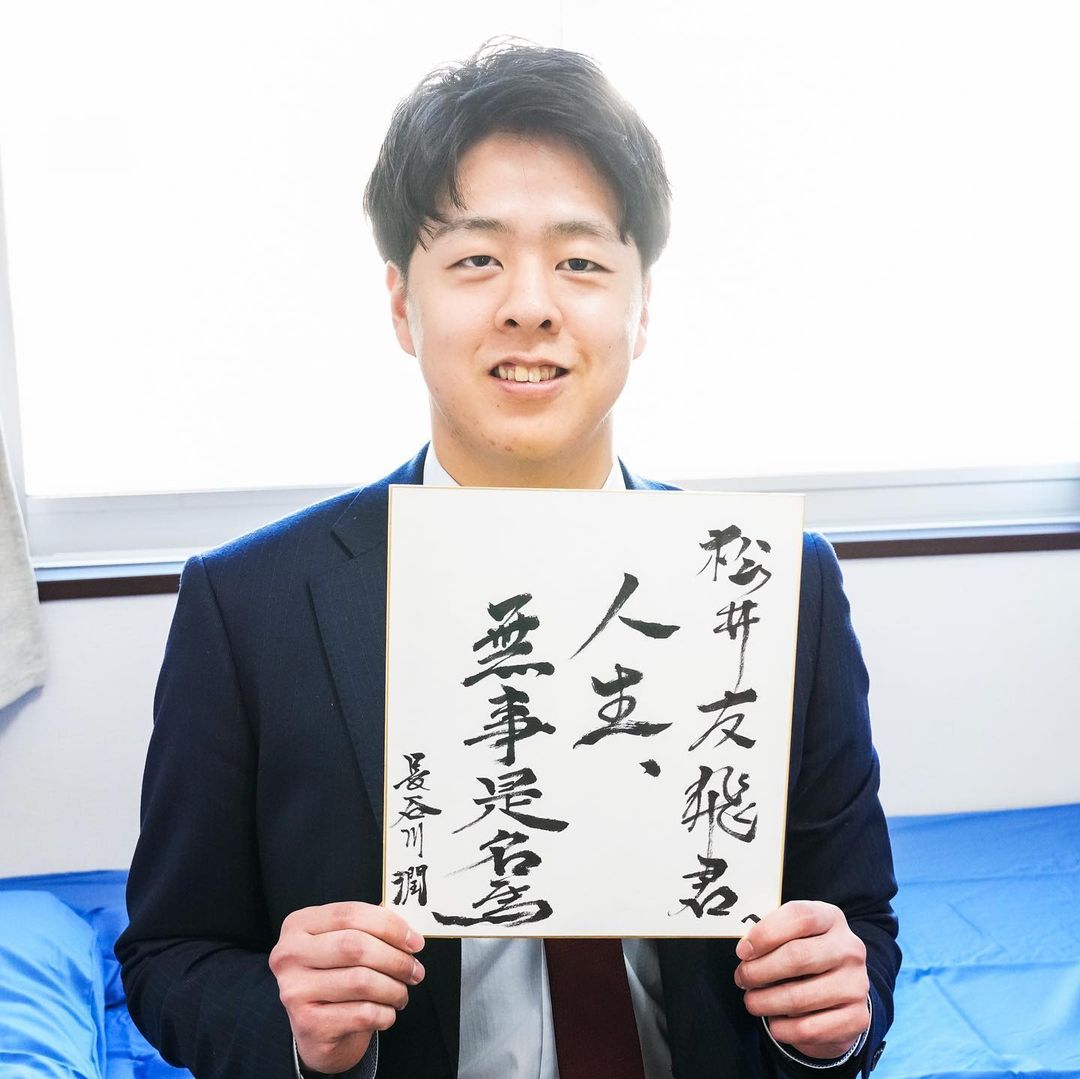 松井友飛君、
人生、
無事是名馬
長谷川潤